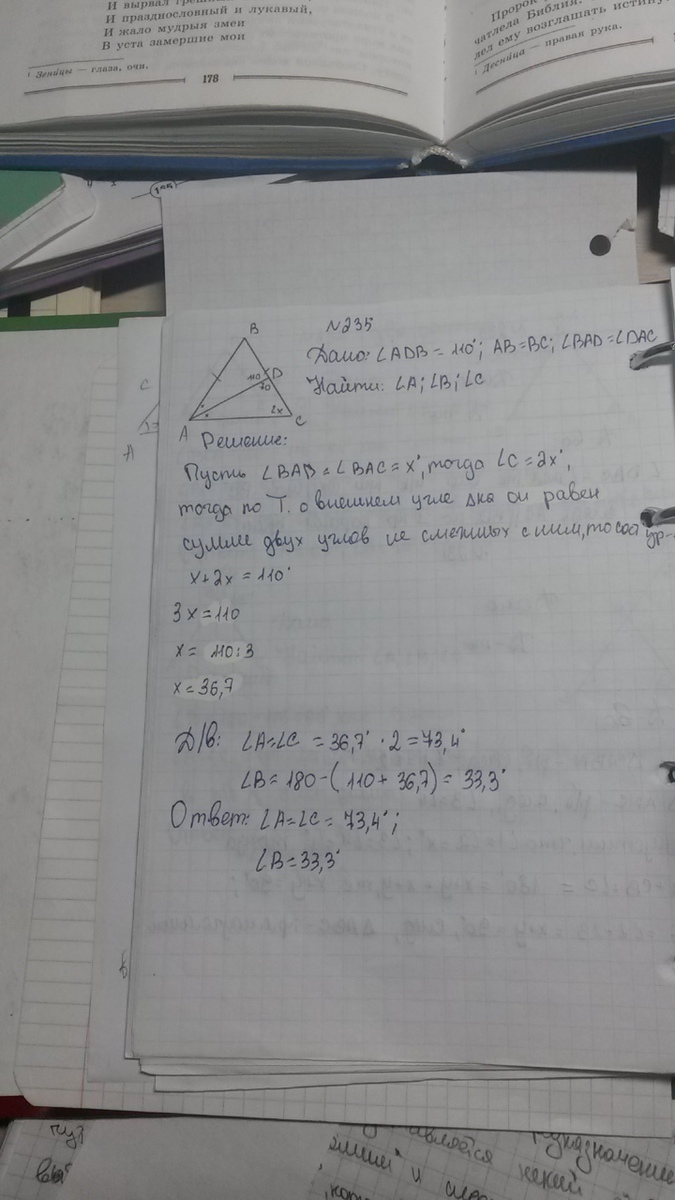 И празднословный и лукавый,
И жало мудрыя змеи
В уста замершие мои
¹ Зеницы — глаза, очи.
178
Пророк
чатлела Библия,
дел ему возглашать истину
Десница — правая рука.
N235
Дано: ∠ADB = 110°; AB=BC; ∠BAD=∠DAC
Найти: ∠A; ∠B; ∠C
B
110
D
70
2x
A
C
Решение:
Пусть ∠BAD = ∠BAC = x°, тогда ∠C = 2x°,
тогда по Т. о внешнем угле △ка он равен
сумме двух углов не смежных с ним, то сос ур-
x+2x = 110°
3x = 110
x = 110:3
x = 36,7
Д/в: ∠A=∠C = 36,7° · 2 = 73,4°
∠B = 180-(110+36,7) = 33,3°
Ответ: ∠A=∠C = 73,4°;
∠B = 33,3°
C
A
является